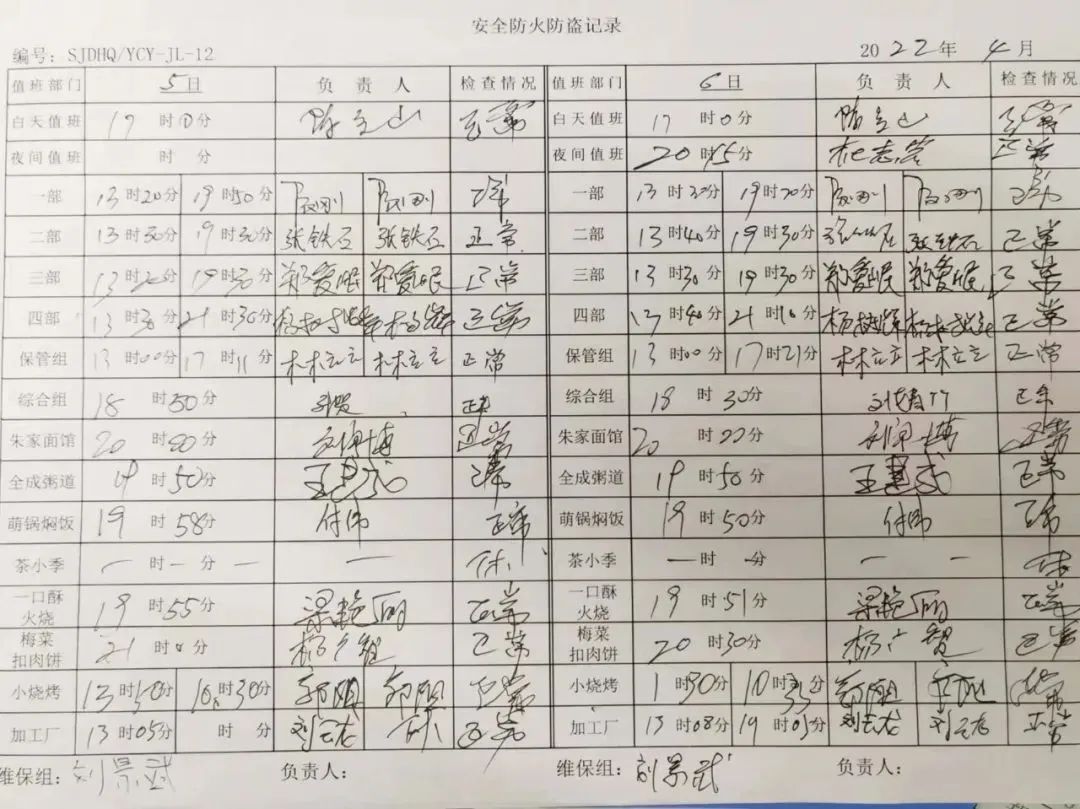 安全防火防盗记录
编号：SJDHQ/YCY-JL-12 2022年 4月
值班部门 5日 负责人 检查情况 值班部门 6日 负责人 检查情况
白天值班 17时0分 陈立山 正常 白天值班 17时0分 陈立山 正常
夜间值班 时 分 夜间值班 20时15分 正常
一部 13时20分 19时50分 正常 一部 13时20分 19时20分 正常
二部 13时30分 19时30分 张铁石 张铁石 正常 二部 13时40分 19时30分 张铁石 张铁石 正常
三部 13时20分 19时30分 郑爱眠 郑爱眠 正常 三部 13时30分 19时30分 郑爱眠 郑爱眠 正常
四部 13时30分 21时30分 正常 四部 13时40分 21时10分 正常
保管组 13时00分 17时11分 林立立 林立立 正常 保管组 13时00分 17时21分 林立立 林立立 正常
综合组 18时30分 正常 综合组 18时30分 正常
朱家面馆 20时20分 正常 朱家面馆 20时22分 正常
全成粥道 19时50分 王慧武 正常 全成粥道 19时50分 王慧武 正常
萌锅焖饭 19时58分 付伟 正常 萌锅焖饭 19时50分 付伟 正常
茶小季 一时一分 一 休 茶小季 一时一分 一 一 休
一口酥火烧 19时55分 梁艳丽 正常 一口酥火烧 19时51分 梁艳丽 正常
梅菜扣肉饼 21时0分 正常 梅菜扣肉饼 20时30分 正常
小烧烤 13时50分 时30分 正常 小烧烤 1时30分 时 分
加工厂 13时05分 时 分 刘云龙 休 正常 加工厂 13时08分 19时05分 刘云龙 刘云龙 正常
维保组：刘景武 负责人： 维保组：刘景武 负责人：